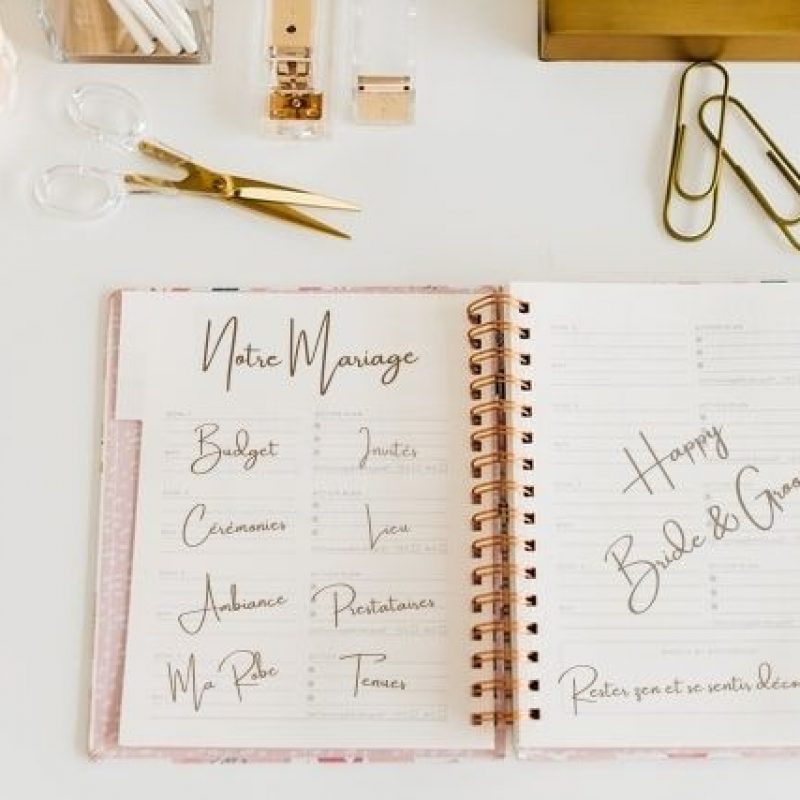 Notre Mariage
Budget Invités
Cérémonies Lieu
Ambiance Prestataires
Ma Robe Tenues
Happy
Bride &
Rester zen et se sentir